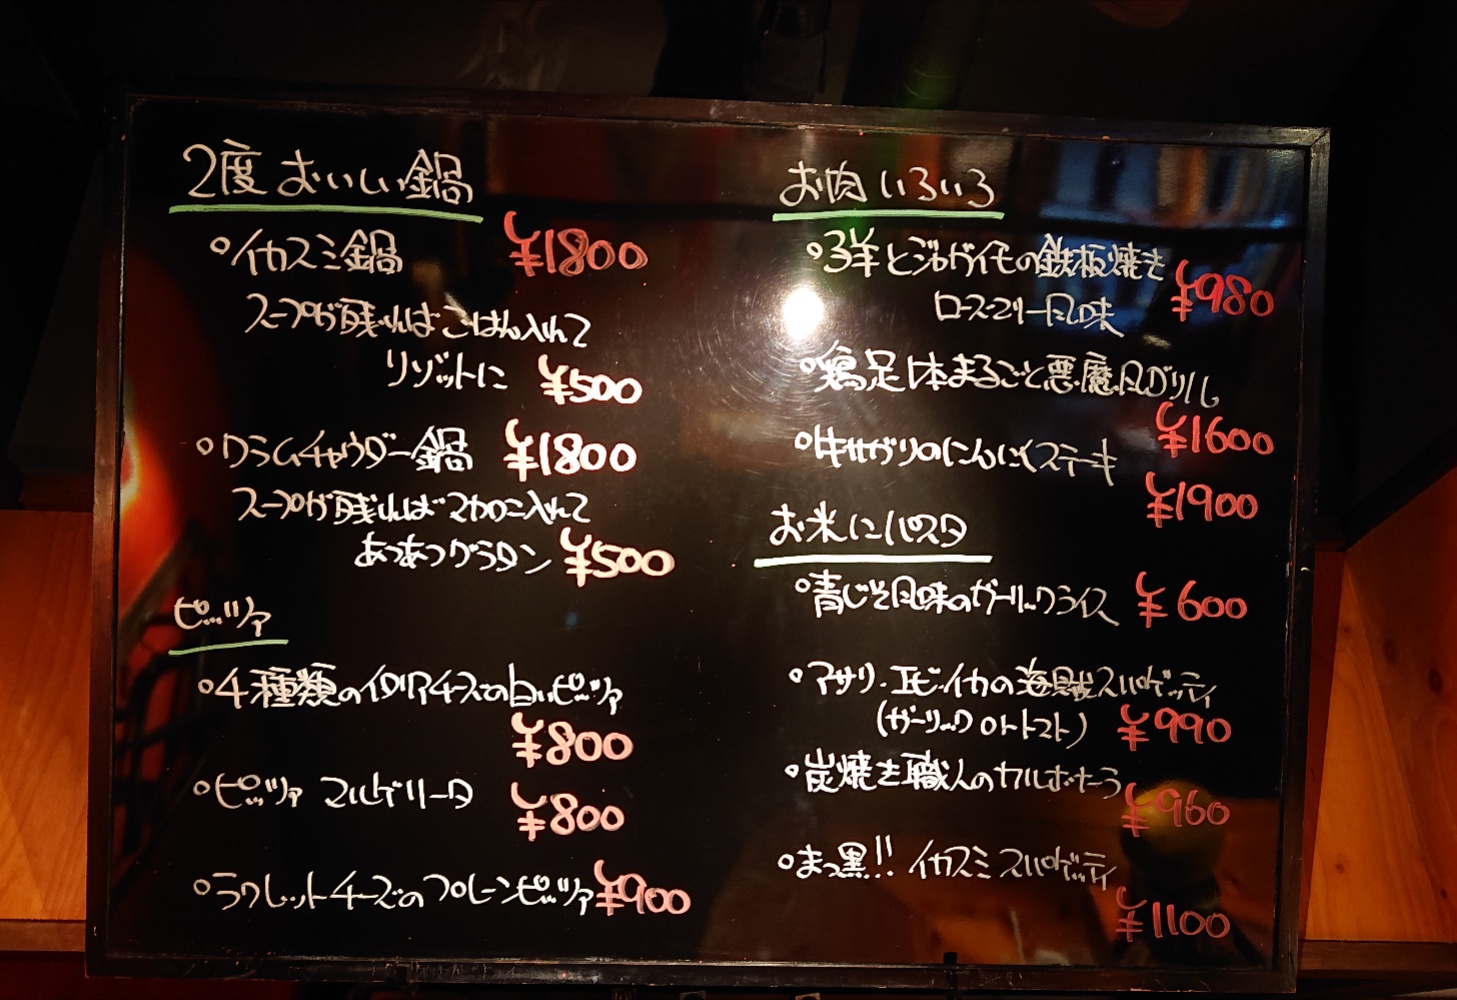 2度おいしい鍋
・イカスミ鍋 ¥1800
スープが残ればごはん入れて
リゾットに ¥500
・クラムチャウダー鍋 ¥1800
スープが残ればマカロニ入れて
あつあつグラタン ¥500
ピッツァ
・4種類のイタリアチーズの白いピッツァ
¥800
・ピッツァ マルゲリータ ¥800
・ラクレットチーズのプレーンピッツァ ¥900
お肉いろいろ
・子羊とジャガイモの鉄板焼き
ローズマリー風味 ¥980
・鶏足1本まるごと悪魔風グリル
¥1600
・牛サガリのにんにくステーキ
¥1900
お米にパスタ
・青じそ風味のガーリックライス ¥600
・アサリ・エビ・イカの海賊スパゲッティ
(ガーリック or トマト) ¥990
・炭焼き職人のカルボナーラ
¥960
・まっ黒!! イカスミスパゲッティ
¥1100